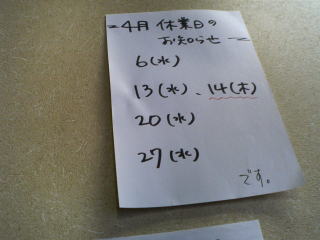 4月 休業日の
お知らせ
6(水)
13(水)、14(木)
20(水)
27(水)
です。